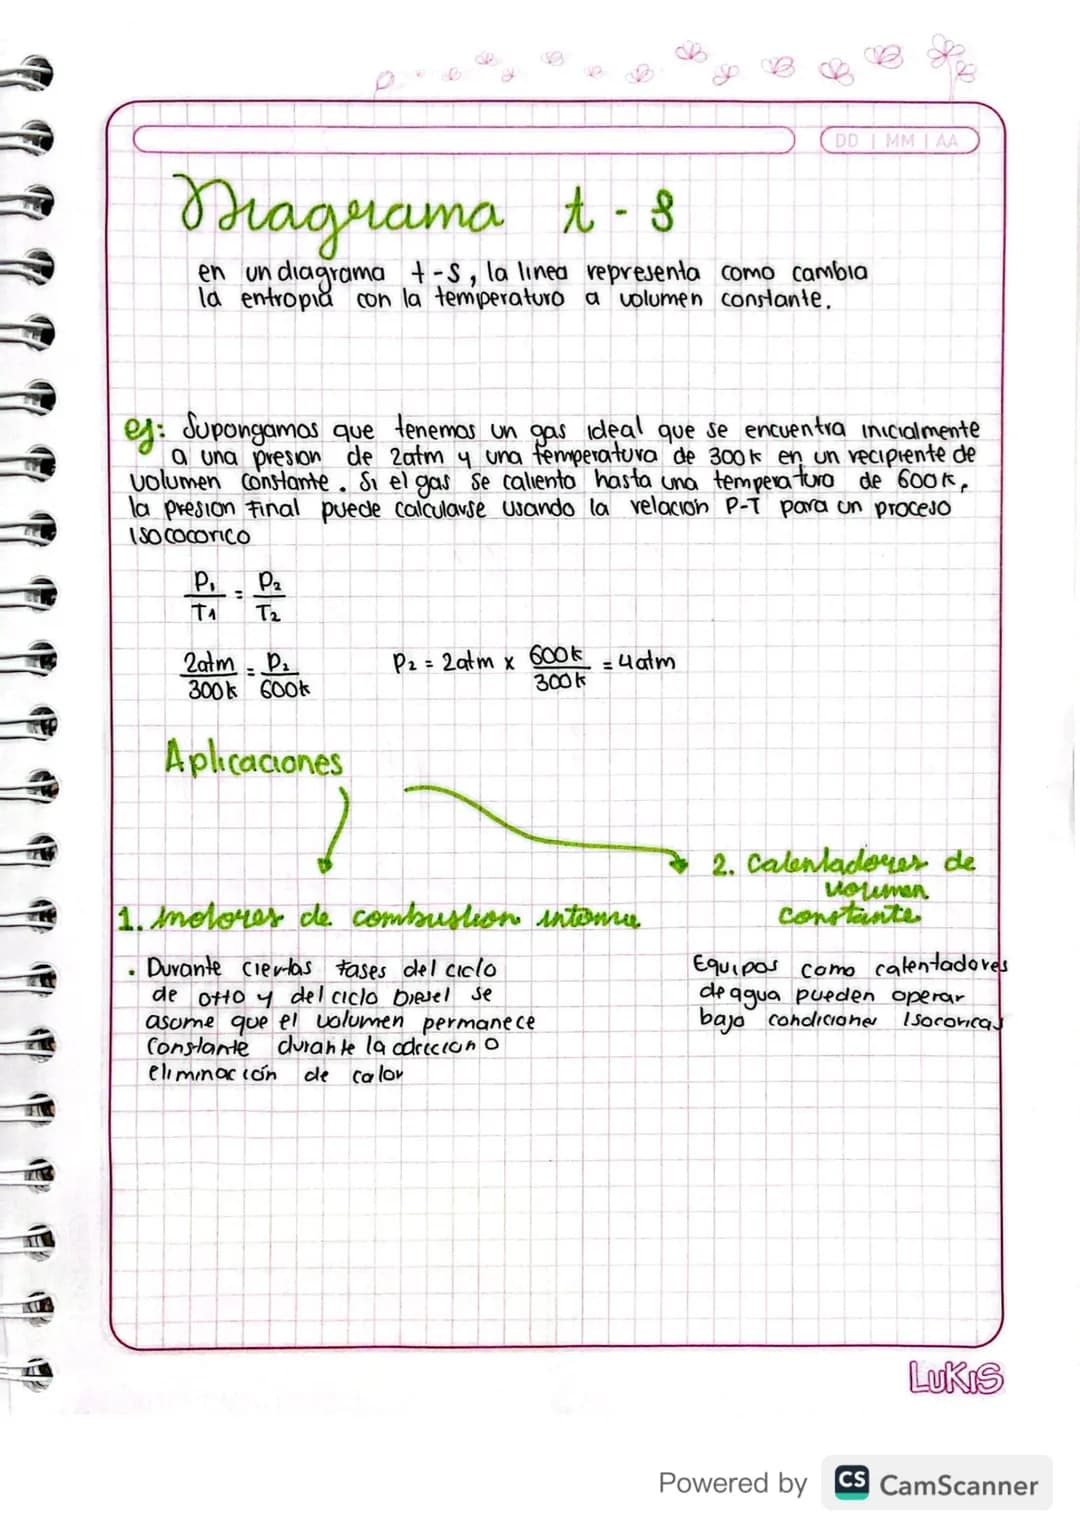 DD | MM | AA
Diagrama t - s
en un diagrama t-s, la linea representa como cambia
la entropia con la temperatura a volumen constante.
ej: Supongamos que tenemos un gas ideal que se encuentra inicialmente
a una presion de 2atm y una temperatura de 300k en un recipiente de
volumen constante. Si el gas se calienta hasta una temperatura de 600k,
la presion final puede calcularse usando la relacion P-T para un proceso
isococorico
P₁/T₁ = P₂/T₂
2atm/300k = P₂/600k P₂ = 2atm x 600k/300k = 4atm
Aplicaciones
2. Calentadores de
volumen
constante
1. motores de combustion interna
• Durante ciertas fases del ciclo
de otto y del ciclo Diesel se
asume que el volumen permanece
constante durante la adiccion o
eliminación de calor
Equipos como calentadores
de agua pueden operar
bajo condiciones isocoricas
LUKIS
Powered by CS CamScanner